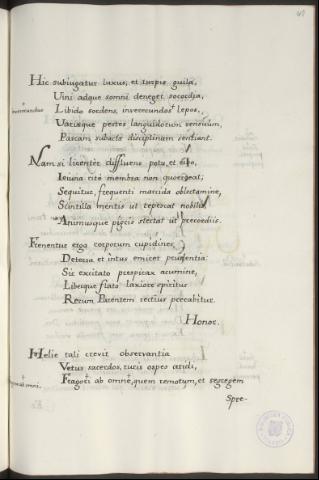 41
Hic subiugatur luxus, et turpis gula,
Vini adque somni degener socordia,
Libido sordens, inverecundus lepos,
inverecundus
Variæque pestes languidorum sensuum,
Parcam subactæ disciplinam sentiunt.
Nam si licenter diffluens potu, et cibo,
Ieiuna rite membra non coerceat;
Sequitur, frequenti marcida oblectamine,
Scintilla mentis ut tepescat nobilis
Animusque pigris stertat ut præcordiis.
Frenentur ergo corporum cupidines,
Detersa et intus emicet prudentia:
Sic excitato perspicax acumine,
Liberque flatu laxiore spiritus
Rerum Parentem rectius precabitur.
Honor.
Helie tali crevit observantia
Vetus sacerdos, ruris ospes aridi,
Fragori ab omni, quem remotum, et segregem
ab omni.
Spre-